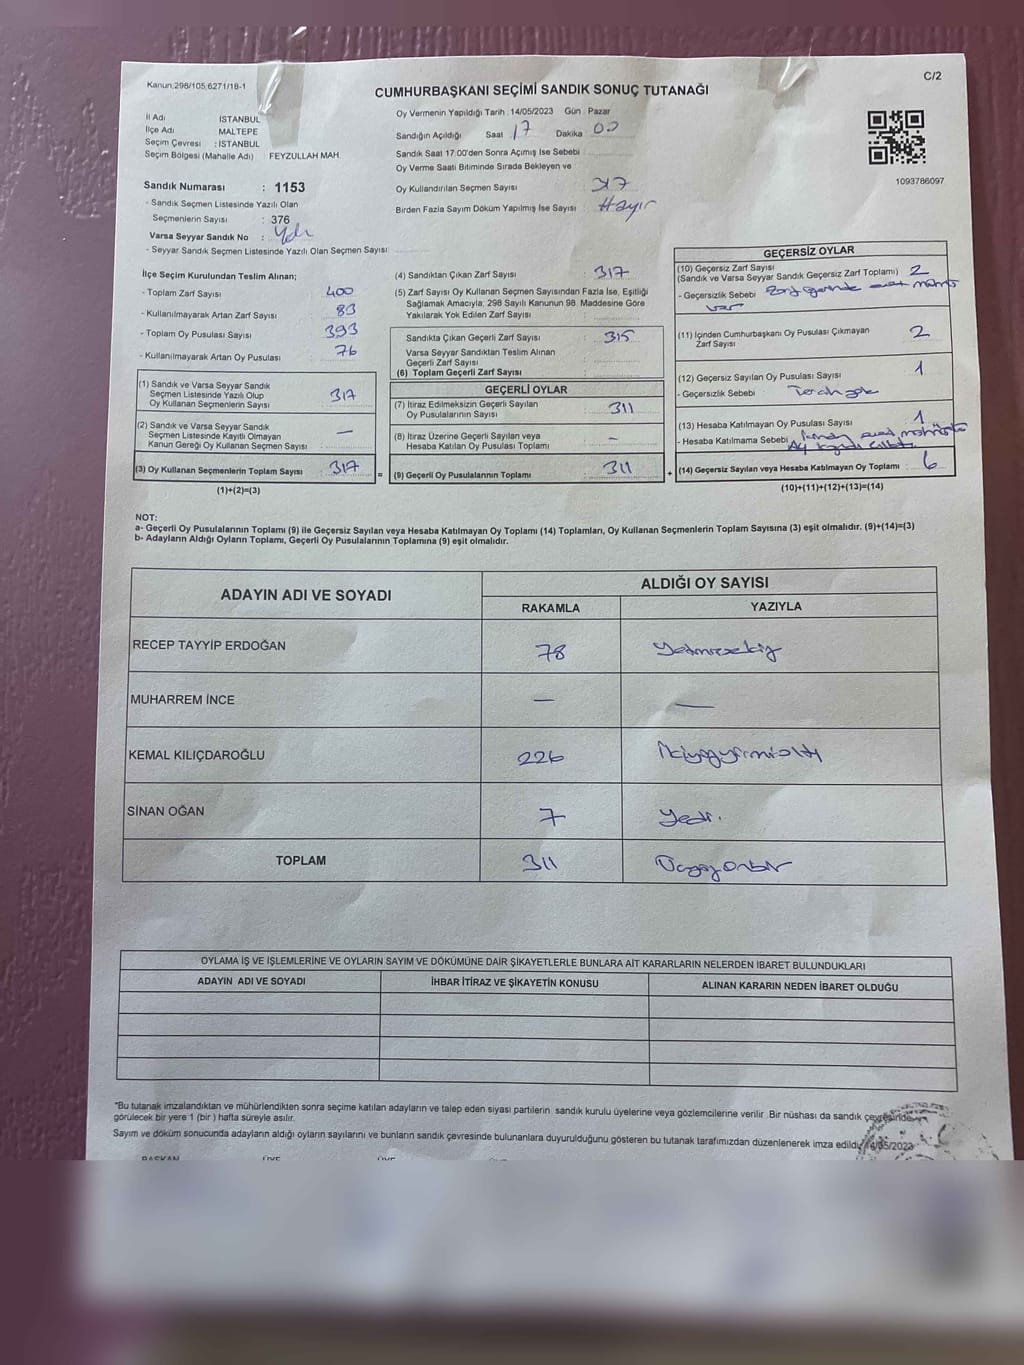 Kanun;298/105;6271/18-1
C/2
CUMHURBAŞKANI SEÇİMİ SANDIK SONUÇ TUTANAĞI
İl Adı İSTANBUL
İlçe Adı MALTEPE
Seçim Çevresi : İSTANBUL
Seçim Bölgesi (Mahalle Adı) FEYZULLAH MAH.
Sandık Numarası : 1153
- Sandık Seçmen Listesinde Yazılı Olan
Seçmenlerin Sayısı : 376
Varsa Seyyar Sandık No :
- Seyyar Sandık Seçmen Listesinde Yazılı Olan Seçmen Sayısı
Oy Vermenin Yapıldığı Tarih : 14/05/2023 Gün : Pazar
Sandığın Açıldığı Saat 17 Dakika 00
Sandık Saat 17:00'den Sonra Açılmış İse Sebebi
Oy Verme Saati Bitiminde Sırada Bekleyen ve
Oy Kullandırılan Seçmen Sayısı
Birden Fazla Sayım Döküm Yapılmış İse Sayısı : Hayır
1093786097
İlçe Seçim Kurulundan Teslim Alınan;
- Toplam Zarf Sayısı : 400
- Kullanılmayarak Artan Zarf Sayısı : 83
- Toplam Oy Pusulası Sayısı : 393
- Kullanılmayarak Artan Oy Pusulası : 76
(1) Sandık ve Varsa Seyyar Sandık
Seçmen Listesinde Yazılı Olup
Oy Kullanan Seçmenlerin Sayısı : 317
(2) Sandık ve Varsa Seyyar Sandık
Seçmen Listesinde Kayıtlı Olmayan
Kanun Gereği Oy Kullanan Seçmen Sayısı : —
(3) Oy Kullanan Seçmenlerin Toplam Sayısı : 317
(1)+(2)=(3)
=
(4) Sandıktan Çıkan Zarf Sayısı : 317
(5) Zarf Sayısı Oy Kullanan Seçmen Sayısından Fazla İse, Eşitliği
Sağlamak Amacıyla; 298 Sayılı Kanunun 98. Maddesine Göre
Yakılarak Yok Edilen Zarf Sayısı :
Sandıkta Çıkan Geçerli Zarf Sayısı : 315
Varsa Seyyar Sandıktan Teslim Alınan
Geçerli Zarf Sayısı :
(6) Toplam Geçerli Zarf Sayısı :
GEÇERLİ OYLAR
(7) İtiraz Edilmeksizin Geçerli Sayılan
Oy Pusulalarının Sayısı : 311
(8) İtiraz Üzerine Geçerli Sayılan veya
Hesaba Katılan Oy Pusulası Sayısı : —
(9) Geçerli Oy Pusulalarının Toplamı : 311
+
GEÇERSİZ OYLAR
(10) Geçersiz Zarf Sayısı
(Sandık ve Varsa Seyyar Sandık Geçersiz Zarf Toplamı) : 2
- Geçersizlik Sebebi
var
(11) İçinden Cumhurbaşkanı Oy Pusulası Çıkmayan
Zarf Sayısı : 2
(12) Geçersiz Sayılan Oy Pusulası Sayısı : 1
- Geçersizlik Sebebi : Tercih yok
(13) Hesaba Katılmayan Oy Pusulası Sayısı : 1
- Hesaba Katılmama Sebebi
(14) Geçersiz Sayılan veya Hesaba Katılmayan Oy Toplamı : 6
(10)+(11)+(12)+(13)=(14)
NOT:
a- Geçerli Oy Pusulalarının Toplamı (9) ile Geçersiz Sayılan veya Hesaba Katılmayan Oy Toplamı (14) Toplamları, Oy Kullanan Seçmenlerin Toplam Sayısına (3) eşit olmalıdır. (9)+(14)=(3)
b- Adayların Aldığı Oyların Toplamı, Geçerli Oy Pusulalarının Toplamına (9) eşit olmalıdır.
ADAYIN ADI VE SOYADI
ALDIĞI OY SAYISI
RAKAMLA YAZIYLA
RECEP TAYYİP ERDOĞAN 78 Yetmişsekiz
MUHARREM İNCE — —
KEMAL KILIÇDAROĞLU 226 İkiyüzyirmialtı
SİNAN OĞAN 7 Yedi.
TOPLAM 311 Üçyüzonbir
OYLAMA İŞ VE İŞLEMLERİNE VE OYLARIN SAYIM VE DÖKÜMÜNE DAİR ŞİKAYETLERLE BUNLARA AİT KARARLARIN NELERDEN İBARET BULUNDUKLARI
ADAYIN ADI VE SOYADI İHBAR İTİRAZ VE ŞİKAYETİN KONUSU ALINAN KARARIN NEDEN İBARET OLDUĞU
"Bu tutanak imzalandıktan ve mühürlendikten sonra seçime katılan adayların ve talep eden siyasi partilerin sandık kurulu üyelerine veya gözlemcilerine verilir. Bir nüshası da sandık çevresinde
görülecek bir yere 1 (bir) hafta süreyle asılır.
Sayım ve döküm sonucunda adayların aldığı oyların sayılarını ve bunların sandık çevresinde bulunanlara duyurulduğunu gösteren bu tutanak tarafımızdan düzenlenerek imza edildi. 14/05/2023
BAŞKAN ÜYE ÜYE